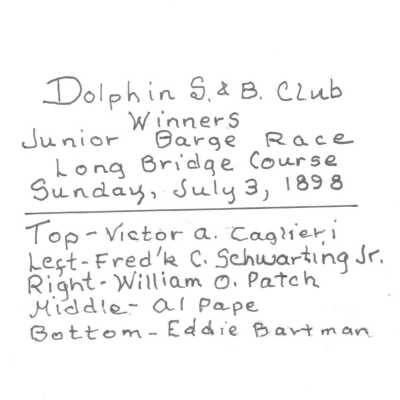 Dolphin S. & B. Club
Winners
Junior Barge Race
Long Bridge Course
Sunday, July 3, 1898
Top - Victor A. Caglieri
Left - Fred'k C. Schwarting Jr.
Right - William O. Patch
Middle - Al Pape
Bottom - Eddie Bartman